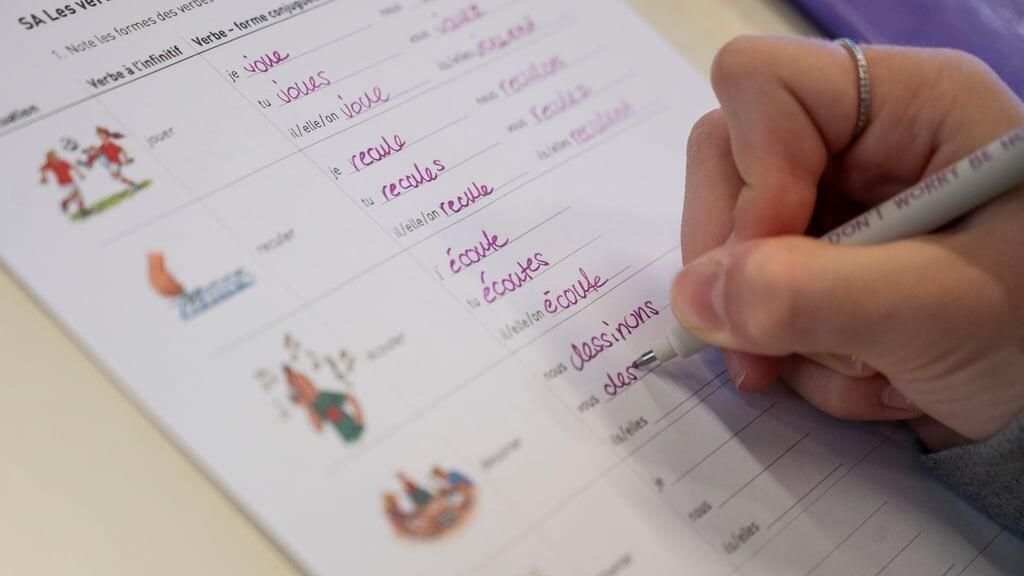 SA Les ver
1. Note les formes des verbes
Verbe à l'infinitif Verbe – forme conjuguée
jouer
je joue
tu joues
il/elle/on joue
vous jouez
ils/elles jouent
reculer
je recule
tu recules
il/elle/on recule
nous reculons
vous reculez
ils/elles reculent
écouter
j' écoute
tu écoutes
il/elle/on écoute
dessiner
nous dessinons
vous des
ils/elles
je
nous
ils/elles
DON'T WORRY BE